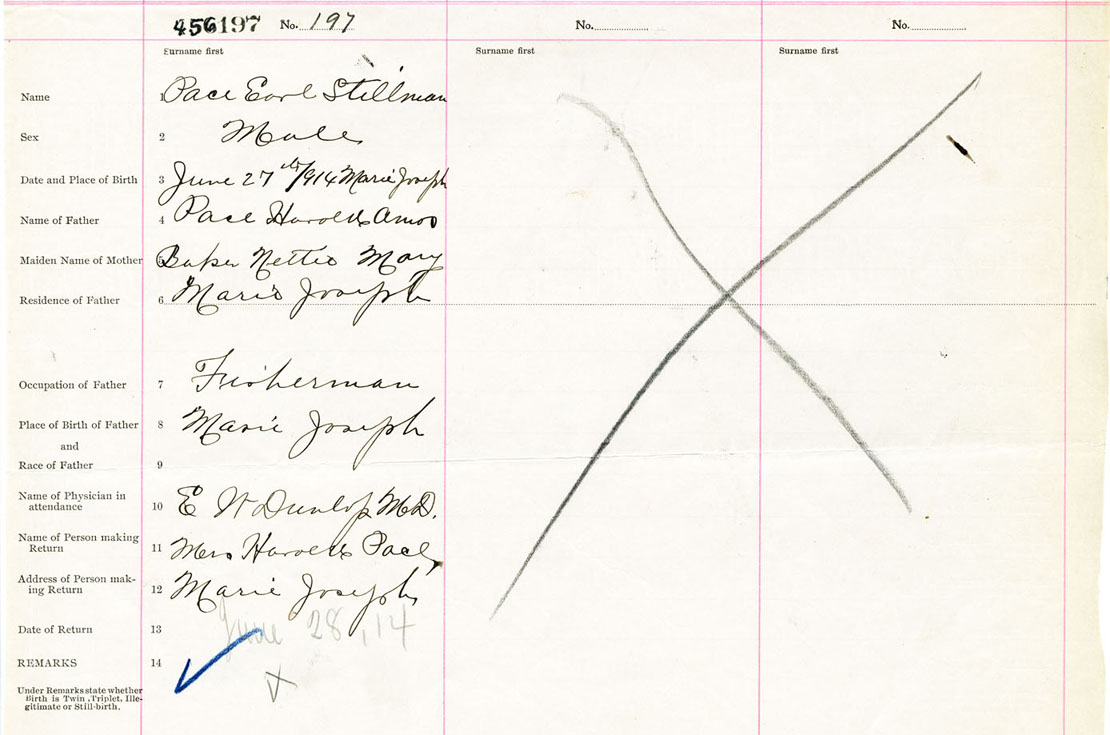 456197 No. 197 No. No.
Surname first Surname first Surname first
Name 1 Pace Earl Stillman
Sex 2 Male
Date and Place of Birth 3 June 27th/914 Marie Joseph
Name of Father 4 Pace Harold Amos
Maiden Name of Mother 5 Baker Nettie Mary
Residence of Father 6 Marie Joseph
Occupation of Father 7 Fisherman
Place of Birth of Father 8 Marie Joseph
and
Race of Father 9
Name of Physician in
attendance 10 E W Dunlop M.D.
Name of Person making
Return 11 Mrs Harold Pace
Address of Person mak-
ing Return 12 Marie Joseph
Date of Return 13 June 28, 14
REMARKS 14
Under Remarks state whether
Birth is Twin, Triplet, Ille-
gitimate or Still-birth.